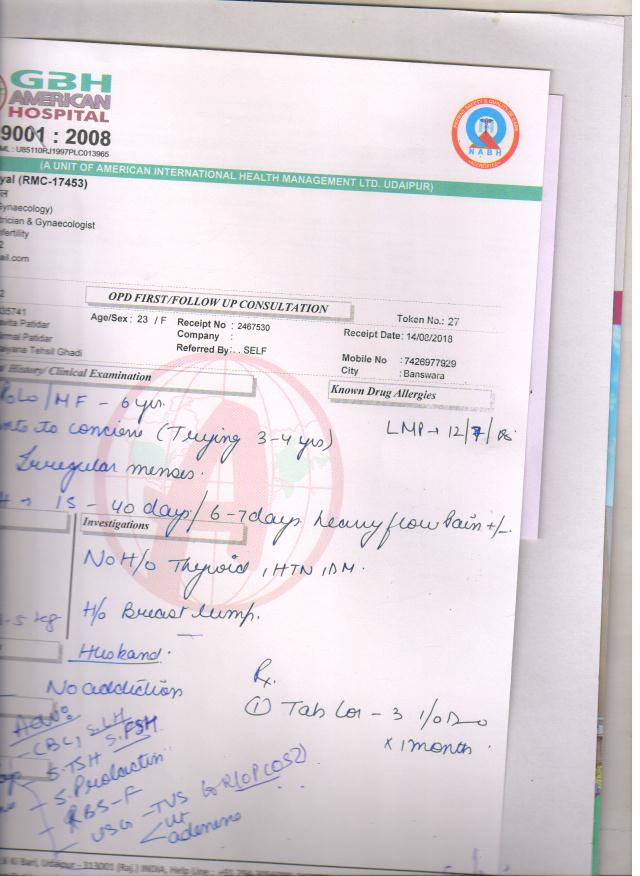 GBH
AMERICAN
HOSPITAL
9001 : 2008
ML : U85110RJ1997PLC013965
PATIENT SAFETY & QUALITY OF CARE
NABH
(A UNIT OF AMERICAN INTERNATIONAL HEALTH MANAGEMENT LTD. UDAIPUR)
yal (RMC-17453)
ynaecology)
trician & Gynaecologist
fertility
2
ail.com
OPD FIRST/FOLLOW UP CONSULTATION
Token No.: 27
2
35741
Age/Sex : 23 / F
Receipt No : 2467530
Receipt Date: 14/08/2018
avita Patidar
Company :
rmal Patidar
Referred By: . . SELF
Mobile No :7426977929
ayana Tehsil Ghadi
City : Banswara
History/ Clinical Examination
Known Drug Allergies
P0L0/MF - 6 yrs.
to conceive (Trying 3-4 yrs)
LMP → 12/7/18
Irregular menses.
H → 15 - 40 days/6-7days heavy flow Pain +/-
Investigations
No H/o Thyroid, HTN, DM.
H/o Breast lump.
5 kg
Husband.
No addiction
Rx.
① Tab - 3 1/0
x 1 month
Adv:
CBC, S.LH
S.FSH
S.TSH
S.Prolactin
RBS-F
USG - TVS (R/O PCOS)
Ut
Udaipur - 313001 (Raj.) INDIA, Help Line :